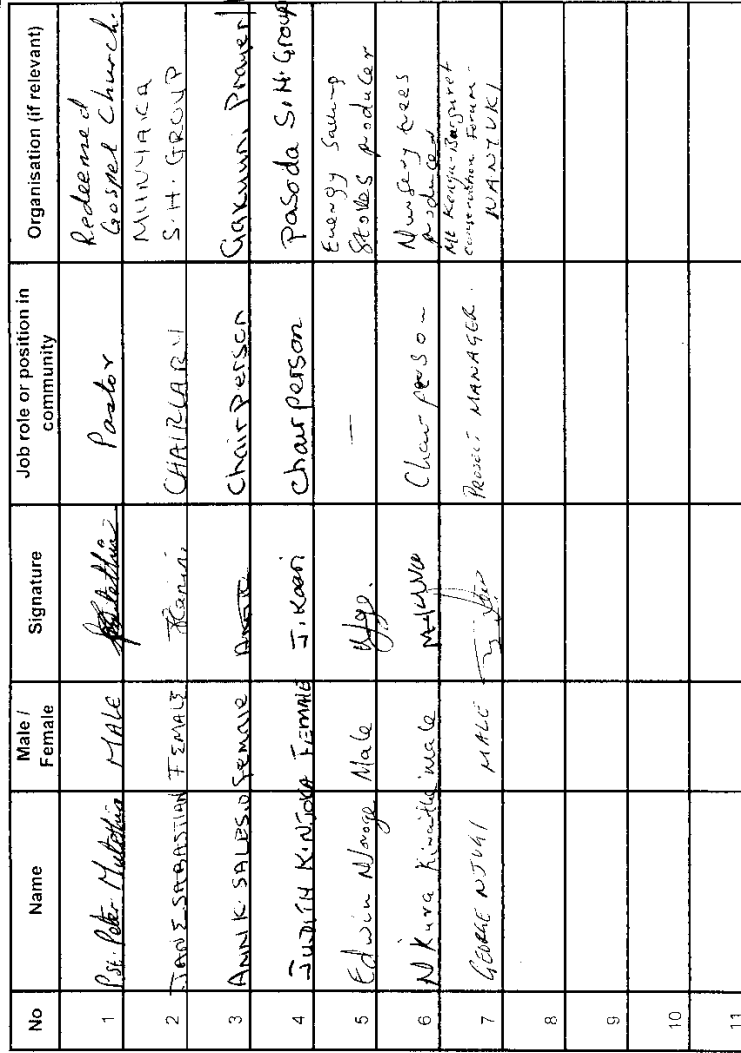 No Name Male / Female Signature Job role or position in community Organisation (if relevant)
1 Pst. Peter Mutethia MALE Pastor Redeemed Gospel Church.
2 JANE SABASTIAN FEMALE S.H. GROUP
3 ANN K. SALESIO Female Chairperson Gakuuni Prayer
4 JUDITH KINJOKA FEMALE J. Kaari Chairperson Pasoda S.H. Group
5 Edwin Male — Energy Saving Stoves producer
6 NKura male Chairperson Nursery trees producer
7 GEORGE NJUGI MALE PROJECT MANAGER. Mt Kenya - conservation Forum - NANYUKI
8
9
10
11